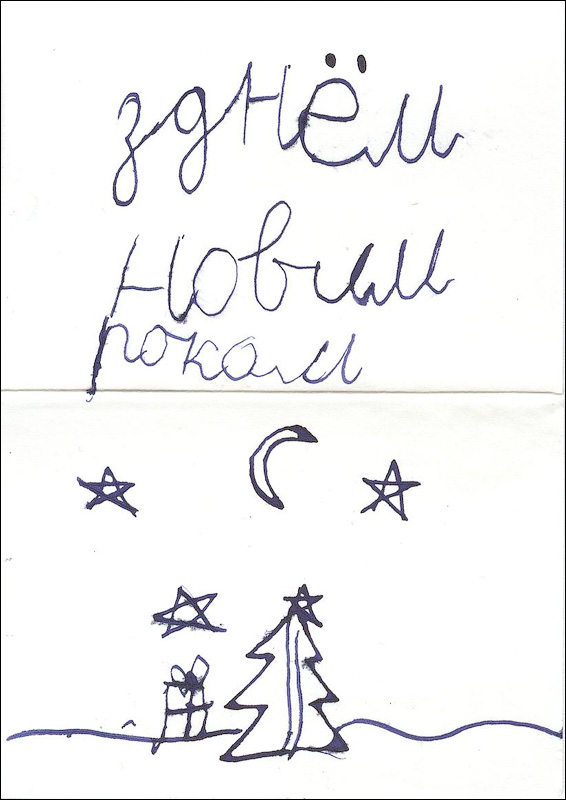 з днём
новим
роком